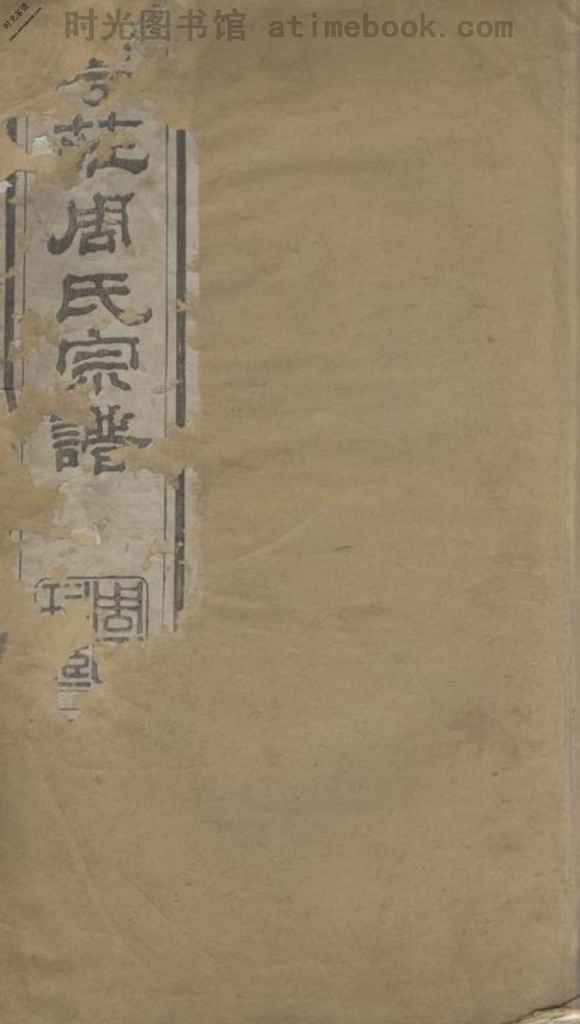 时光图书馆 atimebook.com
莊周氏宗譜
周